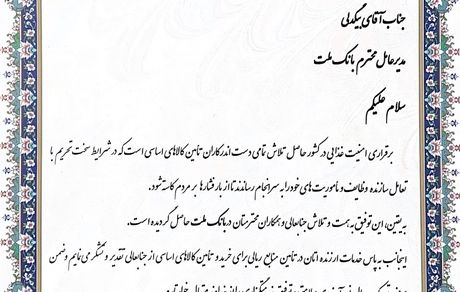 جناب آقای بیگدلی
مدیرعامل محترم بانک ملت
سلام علیکم
برقراری امنیت غذایی در کشور حاصل تلاش تمامی دست اندرکاران تأمین کالاهای اساسی است که در شرایط سخت تحریم با
تعامل سازنده وظایف و مأموریت های خود را به سرانجام رساندند تا از بار فشارها بر مردم کاسته شود.
به یقین، این توفیق به همت و تلاش جنابعالی و همکاران محترمتان در بانک ملت حاصل گردیده است.
اینجانب به پاس خدمات ارزنده اتان در تأمین منابع ریالی برای خرید و تأمین کالاهای اساسی از جنابعالی تقدیر و تشکر می نمایم و ضمن